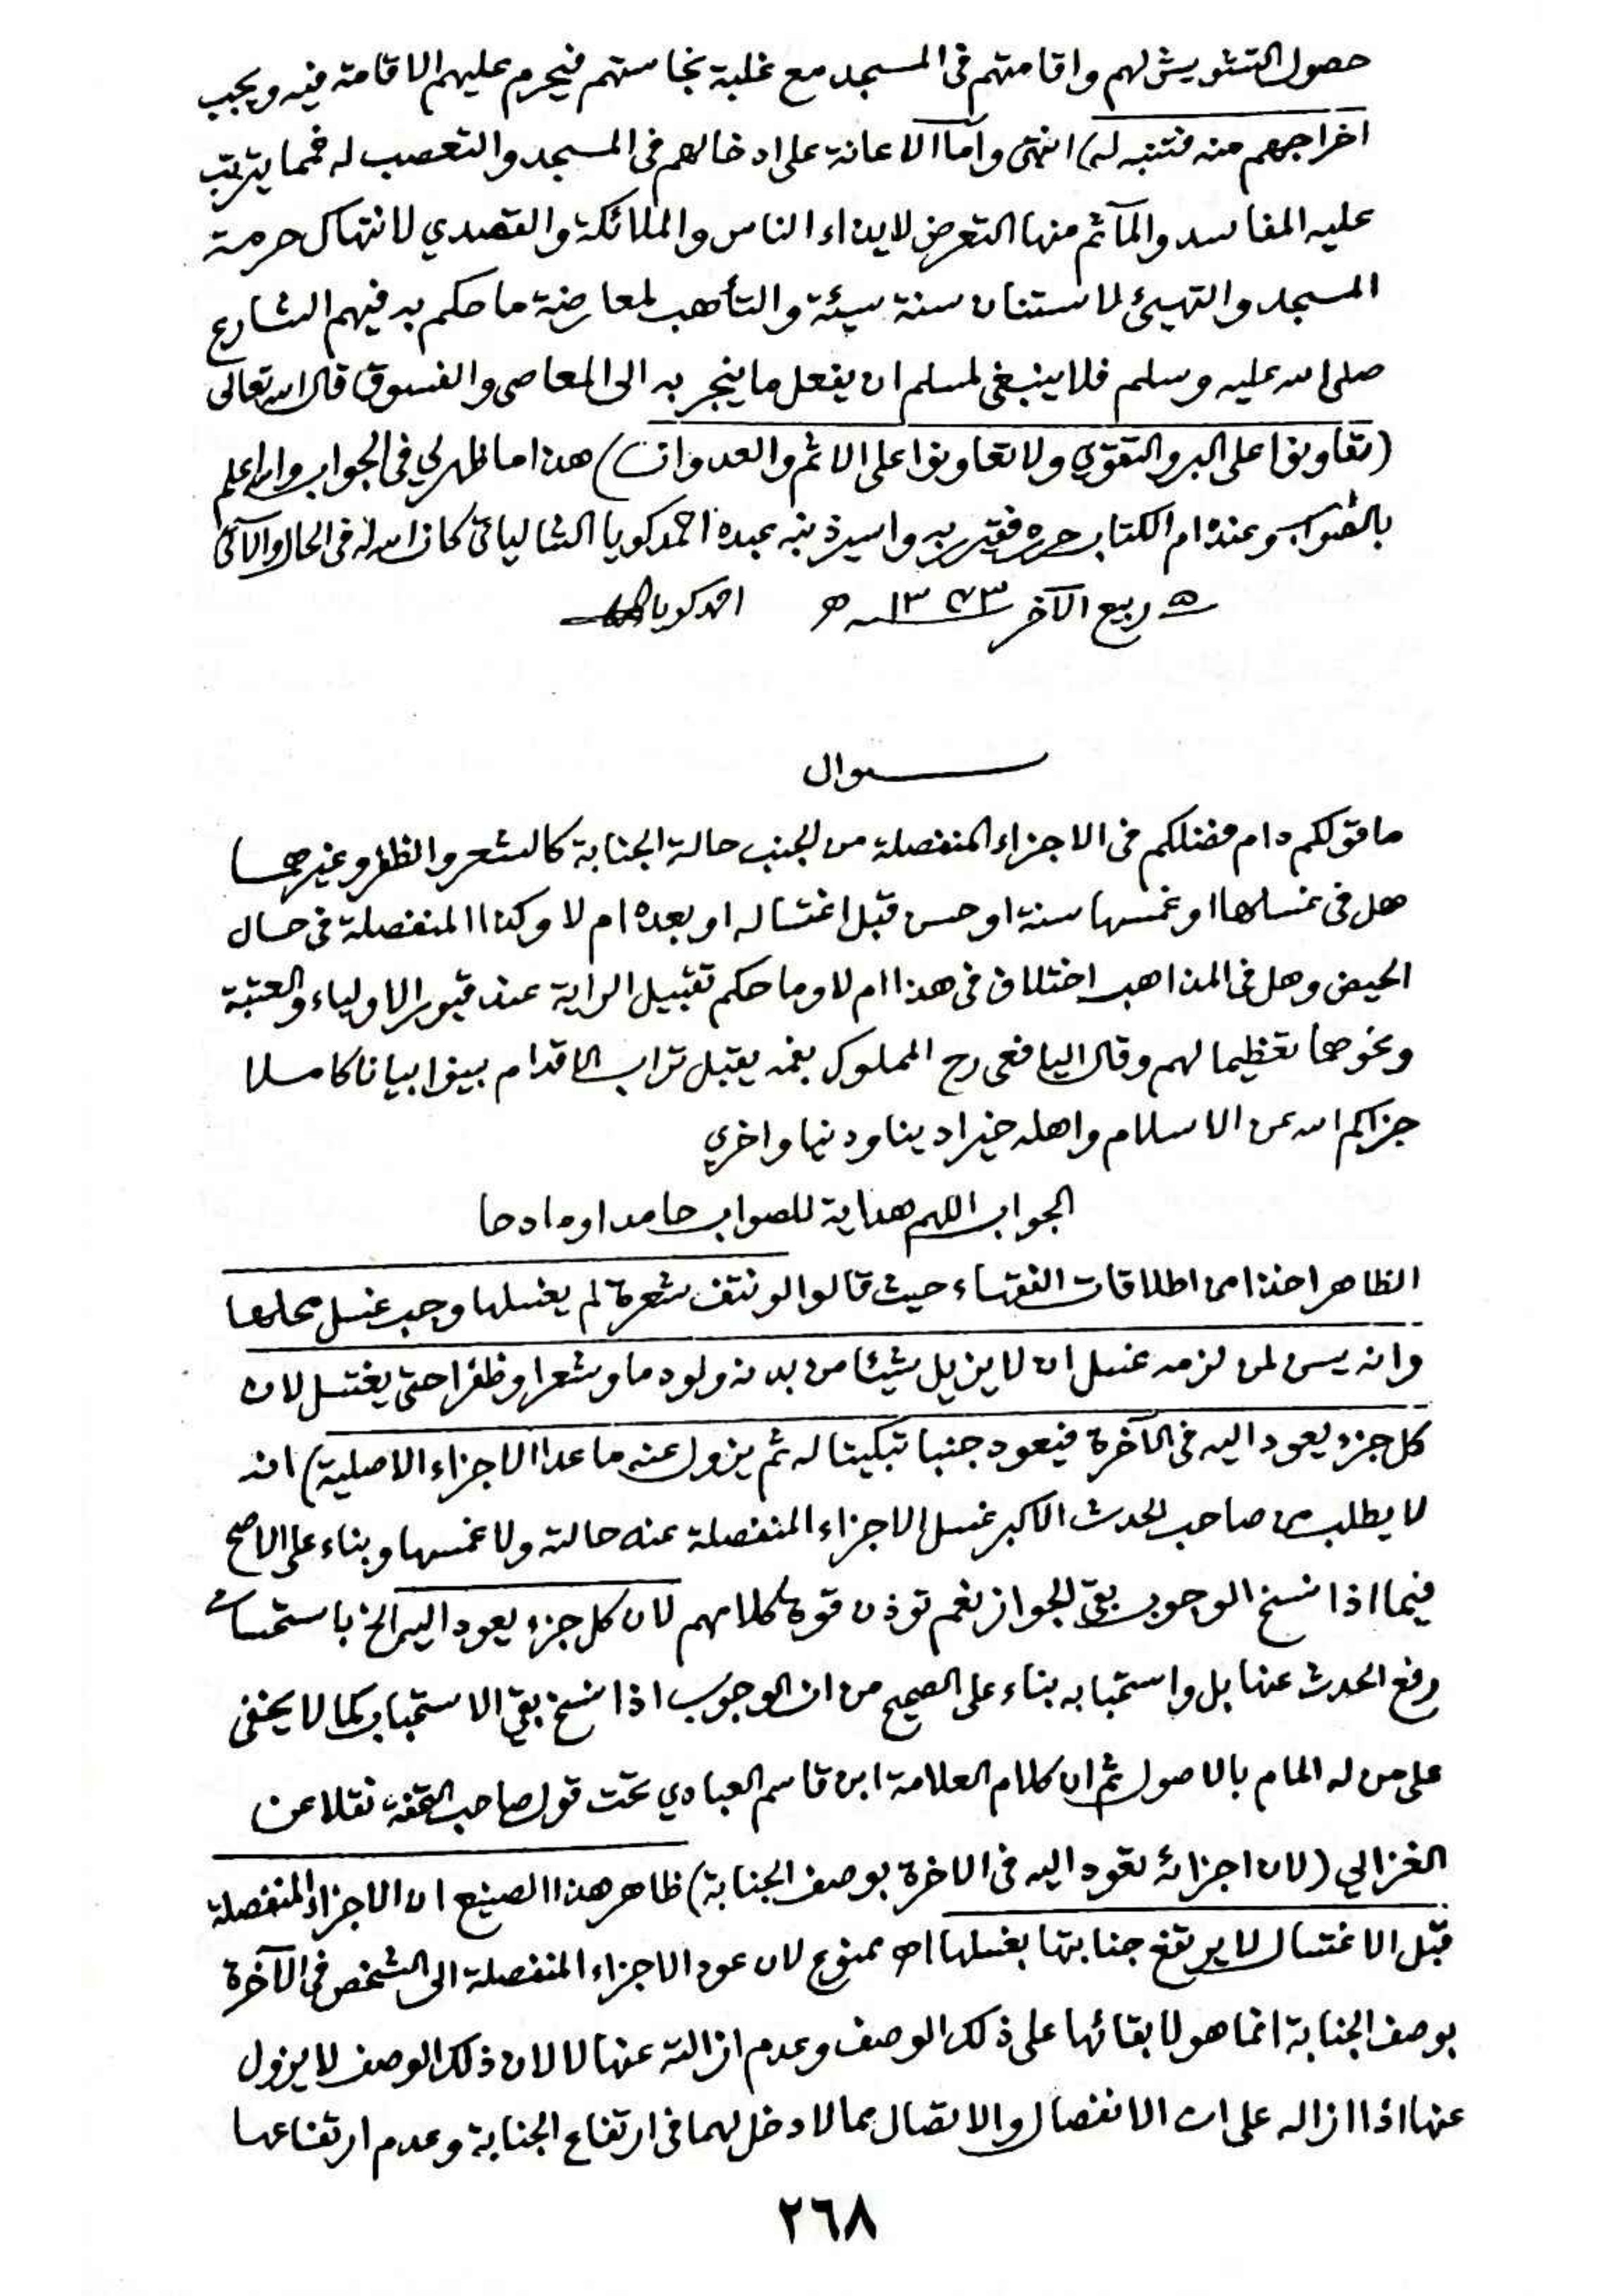 حصول التشويش لهم واقامتهم فى المسجد مع غلبة نجاستهم فيحرم عليهم الاقامة فيه ويجب
اخراجهم منه فتنبه له) انتهى واما الاعانة على ادخالهم فى المسجد والتعصب له فمما يترتب
عليه المفاسد والمآثم منها التعرض لايذاء الناس والملائكة والتصدي لانتهاك حرمة
المسجد والتهيئ لاستنان سنة سيئة والتأهب لمعارضة ما حكم به فيهم الشارع
صلى الله عليه وسلم فلا ينبغى لمسلم ان يفعل ما ينجر به الى المعاصى والفسوق قال الله تعالى
(تعاونوا على البر والتقوي ولا تعاونوا على الاثم والعدوان) هذا ما ظهر لي فى الجواب والله اعلم
بالصواب وعنده ام الكتاب حرره فقير ربه واسير ذنبه عبده احمد كويا الشالياتى كان الله له فى الحال والآتى
٥ ربيع الآخر ١٣٧٣ هـ احمد كويا
سوال
ما قولكم دام فضلكم فى الاجزاء المنفصلة من الجنب حالة الجنابة كالشعر والظفر وغيرهما
هل فى غسلها او غمسها سنة او حسن قبل اغتساله او بعده ام لا وكذا المنفصلة فى حال
الحيض وهل فى المذاهب اختلاف فى هذا ام لا وما حكم تقبيل الراية عند قبور الاولياء والعتبة
ونحوها تعظيما لهم وقال اليافعى رح المملوك بفمه يقبل تراب الاقدام بينوا بيانا كاملا
جزاكم الله عن الاسلام واهله خيرا دينا ودنيا واخري
الجواب اللهم هداية للصواب حامدا ومادحا
الظاهر اخذا من اطلاقات الفقهاء حيث قالوا لو نتف شعرة لم يغسلها وجب غسل محلها
وانه يسن لمن لزمه غسل ان لا يزيل شيئا من بدنه ولو دما وشعرا وظفرا حتى يغتسل لان
كل جزء يعود اليه فى الآخرة فيعود جنبا تبكيتا له ثم يزول عنه ما عدا الاجزاء الاصلية) انه
لا يطلب من صاحب الحدث الاكبر غسل الاجزاء المنفصلة عنه حالته ولا غمسها وبناء على الاصح
فيما اذا نسخ الوجوب بقى الجواز نعم توذن قوة كلامهم لان كل جزء يعود اليه الخ باستحسان
رفع الحدث عنها بل واستحبابه بناء على الصحيح من ان الوجوب اذا نسخ بقى الاستحباب كما لا يخفى
على من له المام بالاصول ثم ان كلام العلامة ابن قاسم العبادي تحت قول صاحب التحفة نقلا عن
الغزالي (لان اجزائه تعود اليه فى الاخرة بوصف الجنابة) ظاهر هذا الصنيع ان الاجزاء المنفصلة
قبل الاغتسال لا يرتفع جنابتها بغسلها اه ممنوع لان عود الاجزاء المنفصلة الى الشخص فى الآخرة
بوصف الجنابة انما هو لابقائها على ذلك الوصف وعدم ازالته عنها لا لان ذلك الوصف لا يزول
عنها اذا ازاله على ان الانفصال والاتصال مما لا دخل لهما فى ارتفاع الجنابة وعدم ارتفاعها
٢٦٨